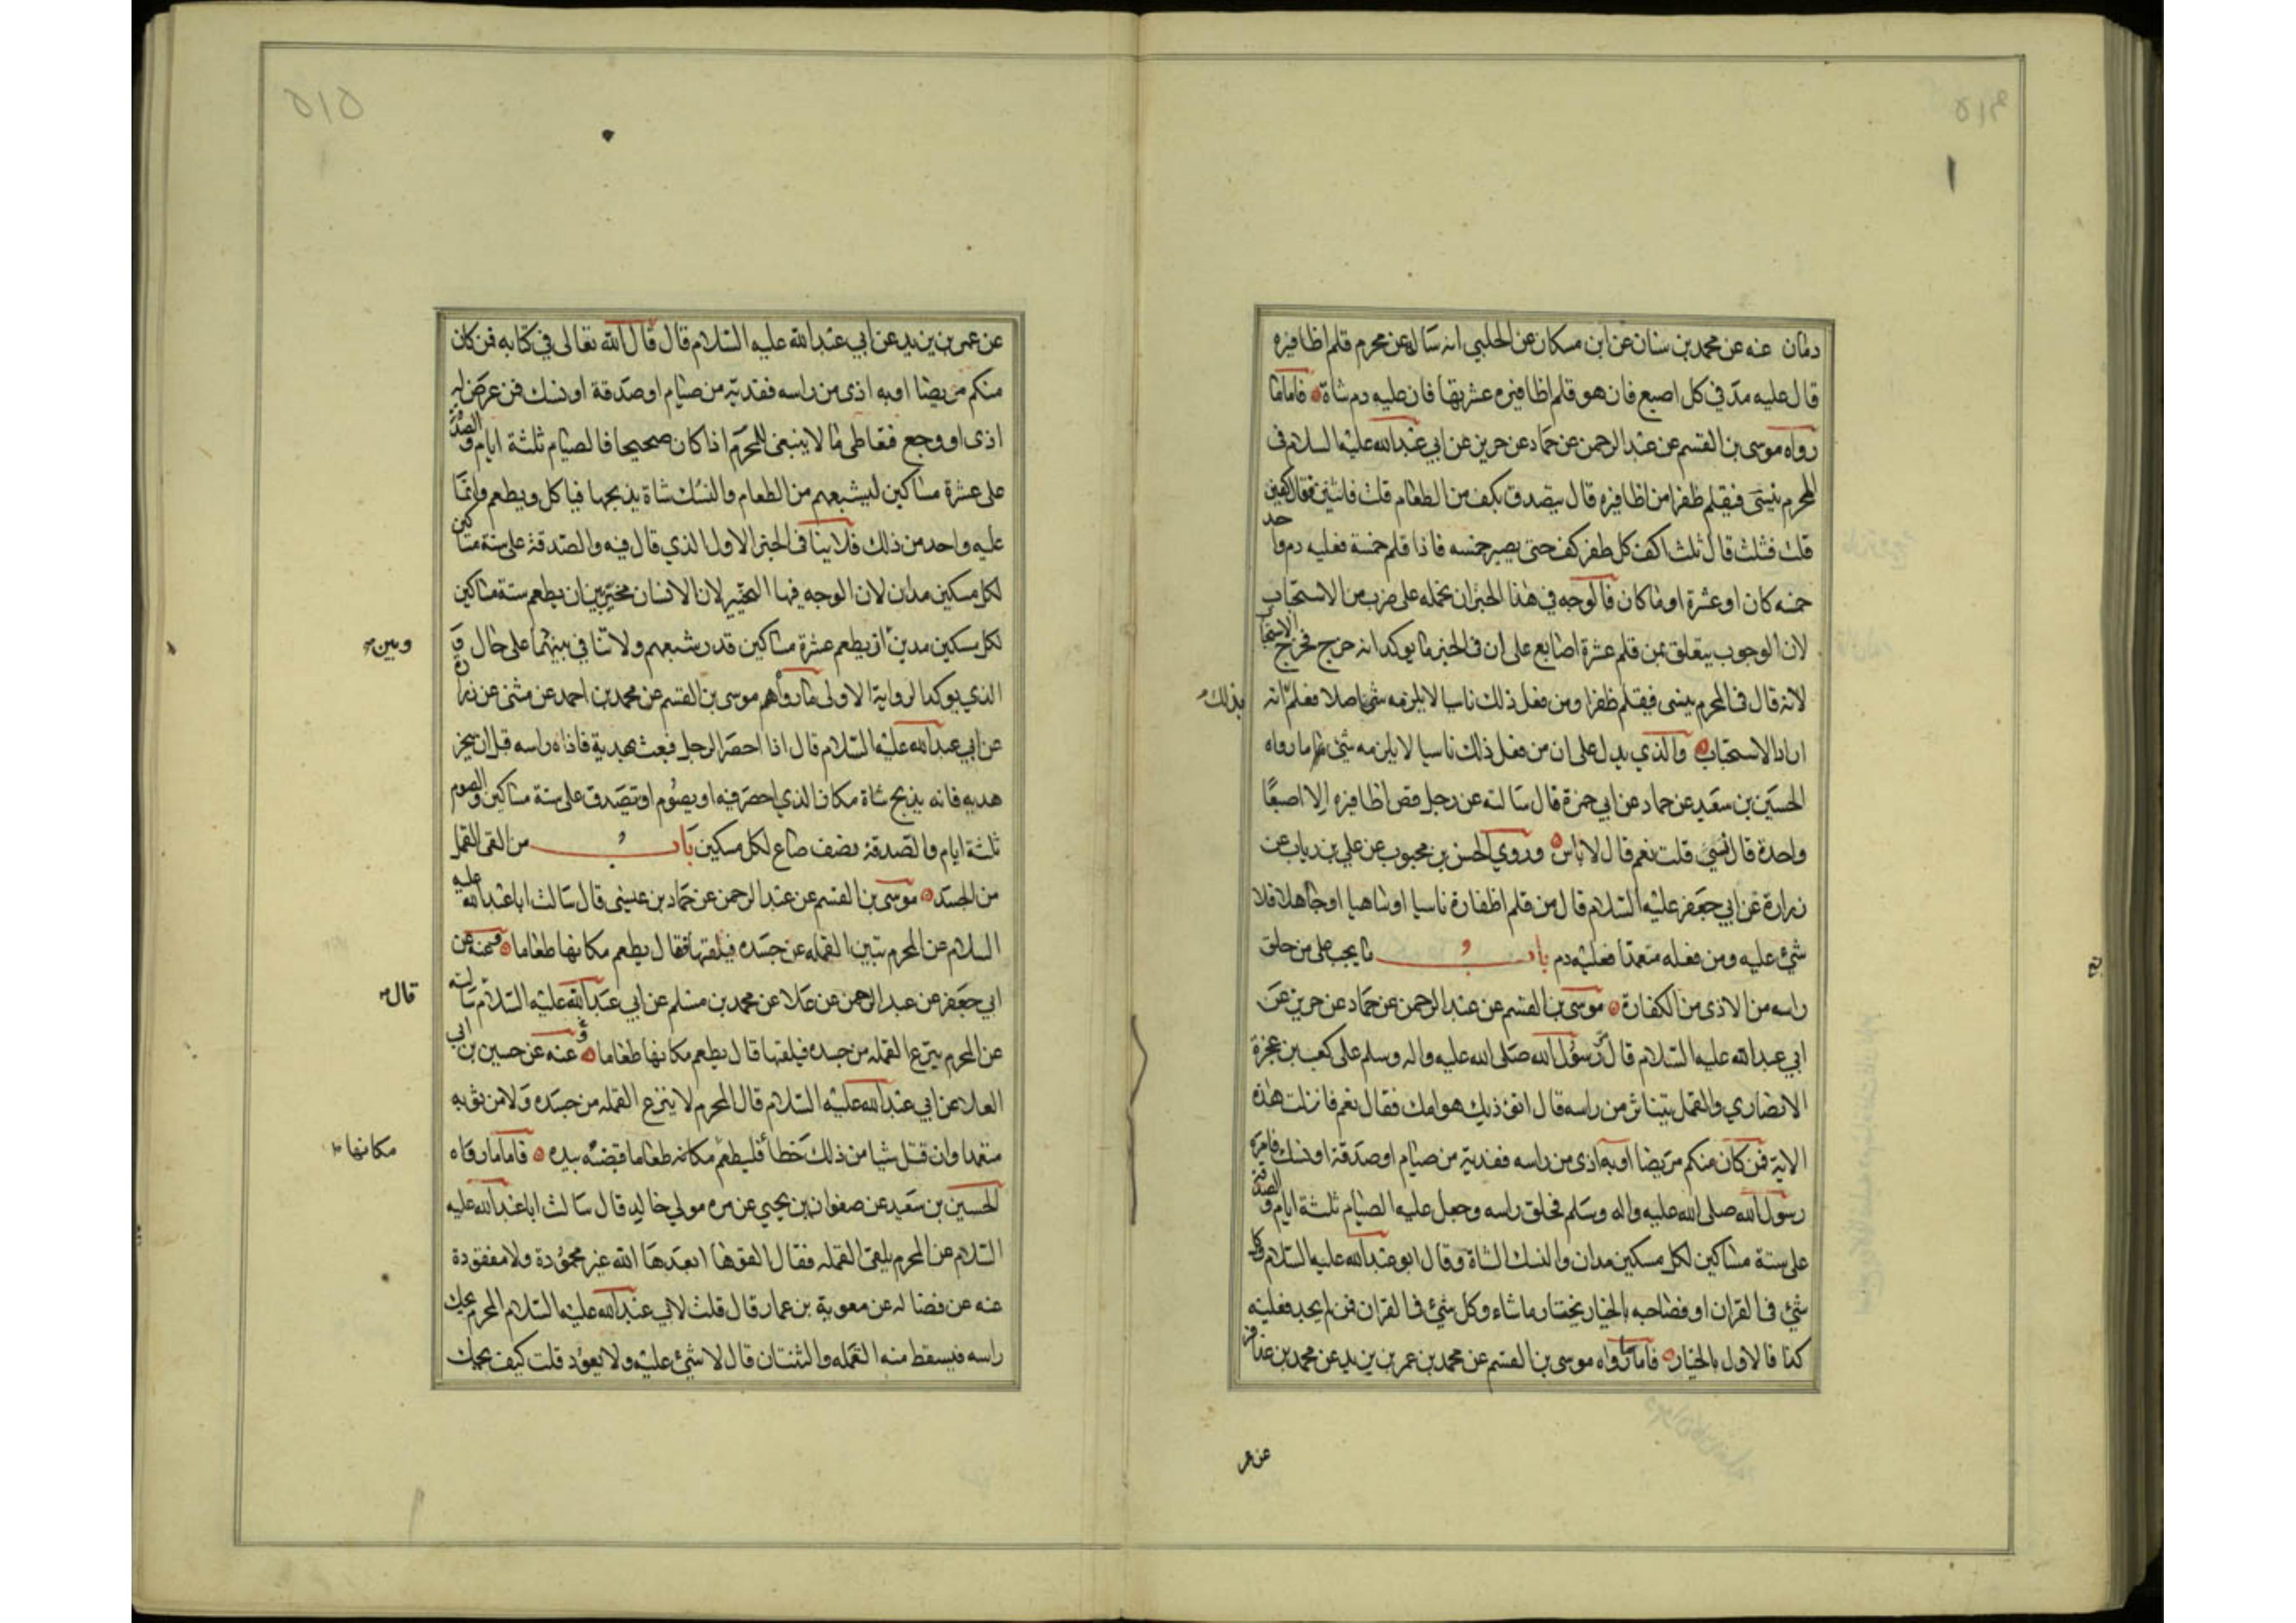 دمان عنه عن محمد بن سنان عن ابن مسكان عن الحلبي انه ساله عن محرم قلم اظافيره
قال عليه مدّ في كل اصبع فان هو قلم اظافيره عشرتها فان عليه دم شاة فاما ما
رواه موسى بن القسم عن عبد الرحمن عن حماد عن حريز عن ابي عبد الله عليه السلام في
المحرم ينسى فيقلم ظفرا من اظافيره قال يتصدق بكف من الطعام قلت فاثنين فقال كفين
قلت فثلث قال ثلث اكف كل ظفر كف حتى يصير خمسه فاذا قلم خمسة فعليه دم واحد
خمسه كان او عشرة او ما كان فالوجه في هذا الخبر ان نحمله على ضرب من الاستحباب
لان الوجوب يتعلق بمن قلم عشرة اصابع على ان في الخبر ما يوكد انه خرج مخرج الاستحبا
لانه قال في المحرم ينسى فيقلم ظفرا ومن فعل ذلك ناسيا لا يلزمه شئ اصلا فعلم انه
بذلك
اراد الاستحباب والذي يدل على ان من فعل ذلك ناسيا لا يلزمه شئ ما رواه
الحسين بن سعيد عن حماد عن ابي حمزة قال سالته عن رجل قص اظافيره الا اصبعًا
واحدة قال نسي قلت نعم قال لا باس وروي الحسن بن محبوب عن علي بن رياب عن
زرارة عن ابي جعفر عليه السلام قال من قلم اظفاره ناسيا او ساهيا او جاهلا فلا
شئ عليه ومن فعله متعمدا فعليه دم باب ما يجب على من حلق
راسه من الاذى من الكفارة موسى بن القسم عن عبد الرحمن عن حماد عن حريز عن
ابي عبد الله عليه السلام قال مر رسول الله صلى الله عليه واله وسلم على كعب بن عجزة
الانصاري والقمل يتناثر من راسه قال اتؤذيك هوامك فقال نعم فانزلت هذه
الاية فمن كان منكم مريضا او به اذى من راسه ففدية من صيام او صدقة او نسك فامره
رسول الله صلى الله عليه واله وسلم فحلق راسه وجعل عليه الصيام ثلثة ايام و الصدقة
على ستة مساكين لكل مسكين مدان والنسك الشاة وقال ابو عبد الله عليه السلام وكل
شئ في القران او فصاحبه بالخيار يختار ما شاء وكل شئ في القران فمن لم يجد فعليه
كذا فالاول بالخيار فاما ما رواه موسى بن القسم عن محمد بن عمر بن يزيد عن محمد بن عذافر
عن عمر
عن عمر بن يزيد عن ابي عبد الله عليه السلام قال قال الله تعالى في كتابه فمن كان
منكم مريضا او به اذى من راسه ففدية من صيام او صدقة او نسك فمن عرض له
اذى او وجع فتعاطى ما لا ينبغي للمحرم اذا كان صحيحا فالصيام ثلثة ايام و الصدقة
على عشرة مساكين ليشبعهم من الطعام والنسك شاة يذبحها فياكل ويطعم وانما
عليه واحد من ذلك فلا ينافي الخبر الاول الذي قال فيه والصدقة على ستة مساكين
لكل مسكين مدان لان الوجه فيها التخير لان الانسان مخير بين ان يطعم ستة مساكين
لكل مسكين مدين ان يطعم عشرة مساكين قدر شبعهم ولا تنافي بينهما على حال و
وبين
الذي يوكد الرواية الاولى ما رواهم موسى بن القسم عن محمد بن احمد عن مثنى عن زرارة
عن ابي عبد الله عليه السلام قال اذا احصر الرجل فبعث بهدية فاذاه راسه قبل ان ينحر
هديه فانه يذبح شاة مكان الذي احصر فيه او يصوم او تصدق على ستة مساكين والصوم
ثلثة ايام والصدقة نصف صاع لكل مسكين باب من القى القمل
من الجسد موسى بن القسم عن عبد الرحمن عن حماد بن عيسى قال سالت ابا عبد الله عليه
السلام عن المحرم يبين القمله عن جسده فيلقيها فقال يطعم مكانها طعاما وعنه عن
ابي جعفر عن عبد الرحمن عن علا عن محمد بن مسلم عن ابي عبد الله عليه السلام سالته
قال
عن المحرم ينزع القمله من جسده فيلقيها قال يطعم مكانها طعاما وعنه عن حسين بن ابي
العلا عن ابي عبد الله عليه السلام قال المحرم لا ينزع القمله من جسده ولا من ثوبه
متعمدا وان قتل شيا من ذلك خطأ فليطعم مكانه طعاما قبضه بيده فاما ما رواه
مكانها
الحسين بن سعيد عن صفوان بن يحيي عن مره مولى خالد قال سالت ابا عبد الله عليه
السلام عن المحرم يلقى القمله فقال القوها ابعدها الله غير محمودة ولا مفقودة
عنه عن فضاله عن معوية بن عمار قال قلت لابي عبد الله عليه السلام المحرم يحك
راسه فيسقط منه القمله والثنتان قال لا شئ عليه ولا يعود قلت كيف يحك